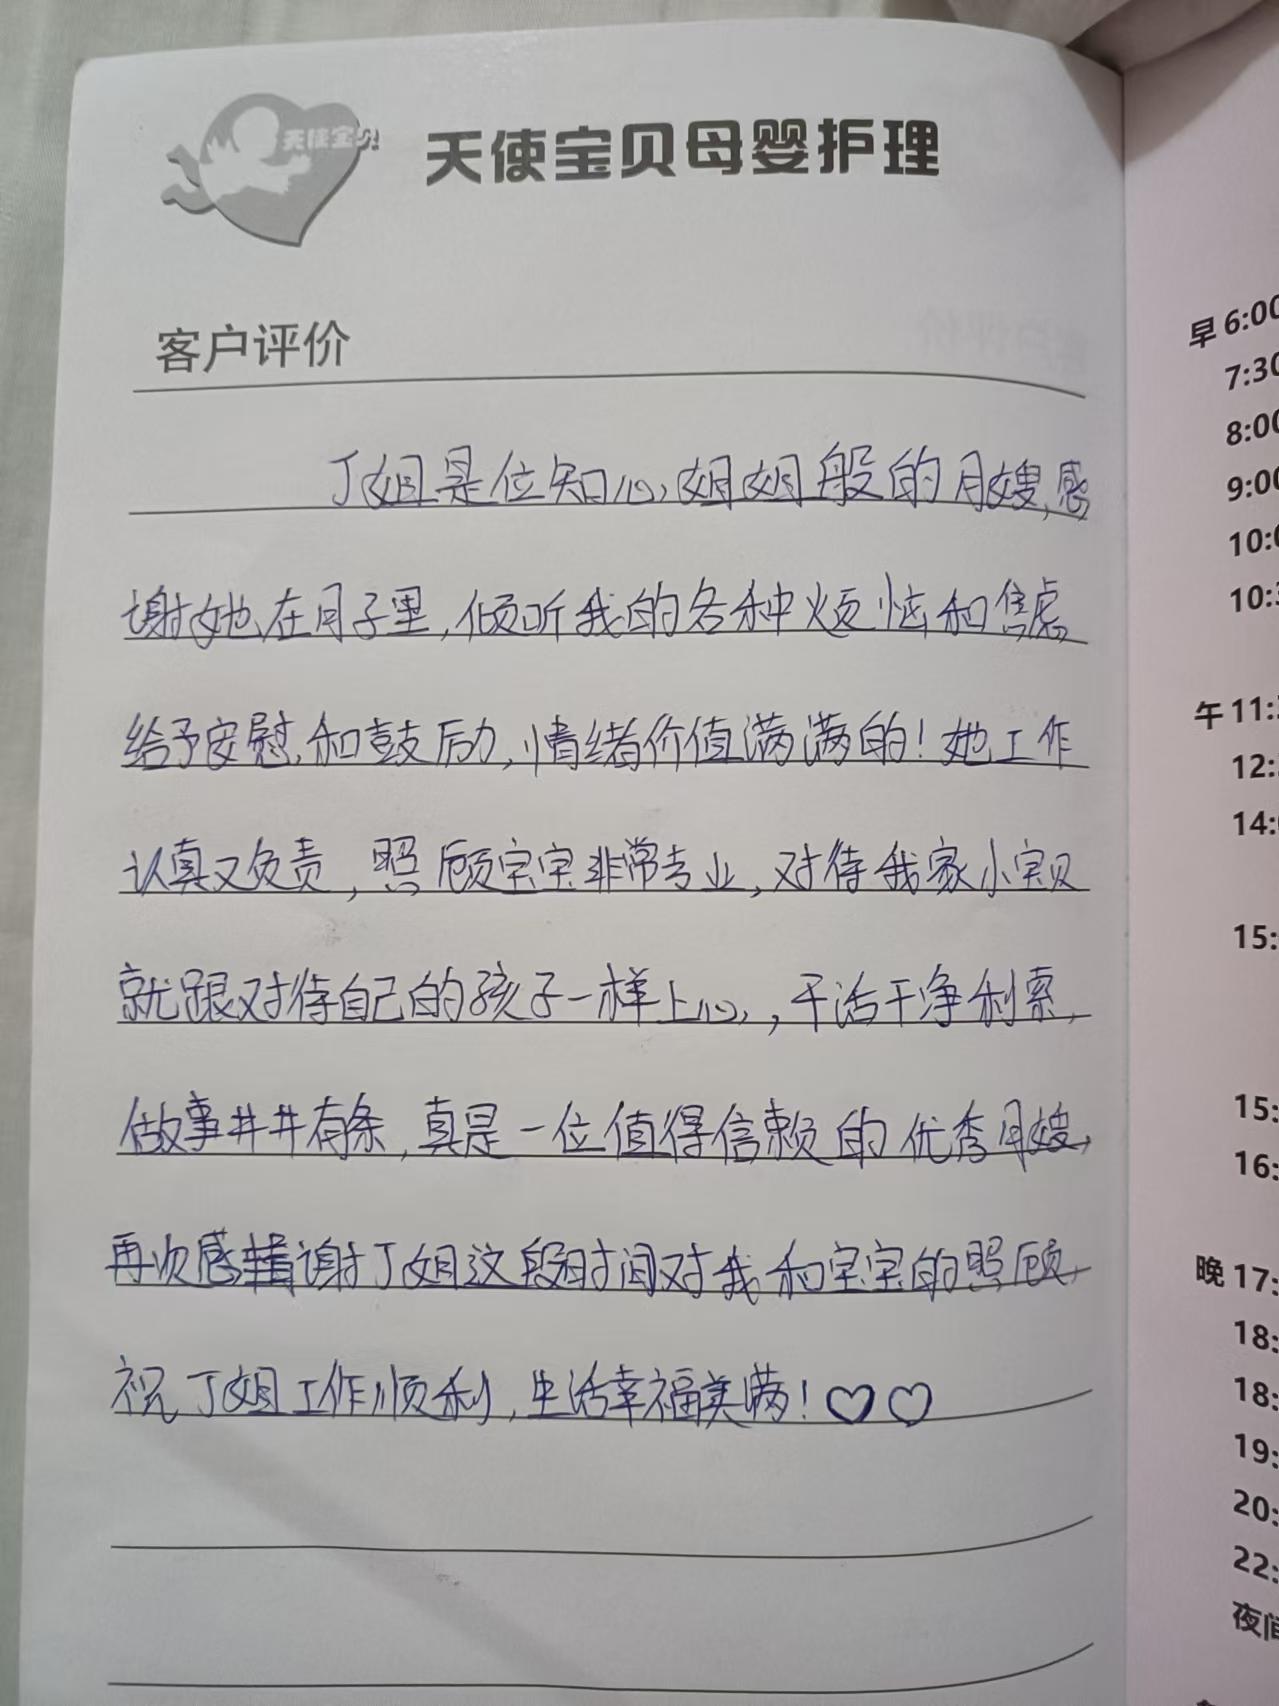 天使宝贝
天使宝贝母婴护理
客户评价
丁姐是位知心姐姐般的月嫂,感
谢她在月子里,倾听我的各种烦恼和焦虑
给予安慰,和鼓励,情绪价值满满的!她工作
认真又负责,照顾宝宝非常专业,对待我家小宝贝
就跟对待自己的孩子一样上心,干活干净利索,
做事井井有条,真是一位值得信赖的优秀月嫂,
再次感谢丁姐这段时间对我和宝宝的照顾,
祝丁姐工作顺利,生活幸福美满!♡♡
早 6:00
7:30
8:00
9:00
10:0
10:3
午 11:
12:
14:
15:
15:
16:
晚 17:
18:
18:
19:
20:
22:
夜间